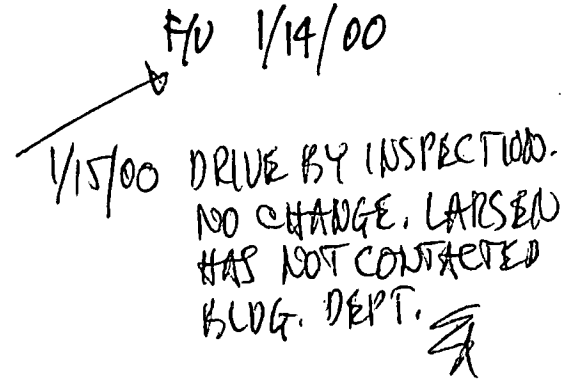 F/U 1/14/00
1/15/00 DRIVE BY INSPECTION.
NO CHANGE. LARSEN
HAS NOT CONTACTED
BLDG. DEPT.